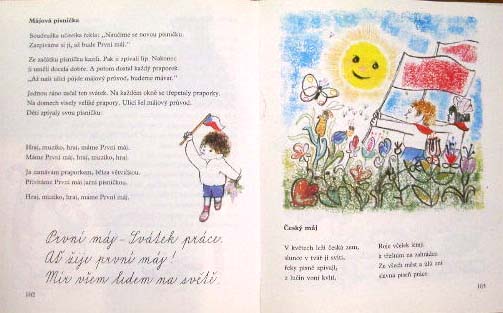 Májová písnička
Soudružka učitelka řekla: „Naučíme se novou písničku.
Zazpíváme si ji, až bude První máj.
Ze začátku písničku kazili. Pak ji zpívali líp. Nakonec
ji uměli docela dobře. A potom dostal každý praporek.
„Až naší ulicí půjde májový průvod, budeme mávat."
Jednou ráno začal ten svátek. Na každém okně se třepetaly praporky.
Na domech visely veliké prapory. Ulicí šel májový průvod.
Děti zpívaly svou písničku:
Hraj, muziko, hraj, máme První máj.
Máme První máj, hraj, muziko, hraj.
Já zamávám praporkem, běžím větvičkou.
Přivítáme První máj jarní písničkou.
Hraj, muziko, hraj, máme První máj.
První máj – Svátek práce.
Ať žije první máj!
Mír všem lidem na světě.
102
Český máj
V květech leží česká zem,
slunce v tvář jí svítí,
řeky písně zpívají,
z lučin voní kvítí.
Roje včelek letí
k třešním na zahrádce.
Ze všech měst a vsí zní
slavná píseň práce.
103